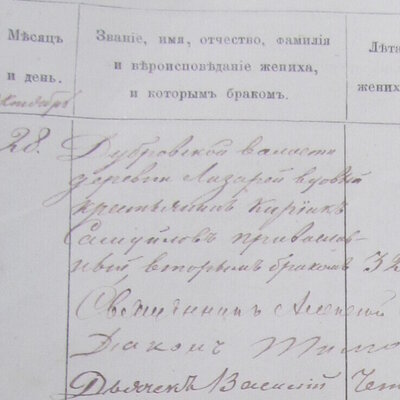 Мѣсяцъ и день.
Званіе, имя, отчество, фамилія и вѣроисповѣданіе жениха, и которымъ бракомъ.
Лѣта жених
Октябрь
28.
Дубровской волости
деревни Лазарей вдовый
крестьянинъ Кирікъ
Самуйловъ православ-
ный вторымъ бракомъ 32
Священникъ Алексѣй
Діаконъ Тимо
Дьячекъ Василій Чет